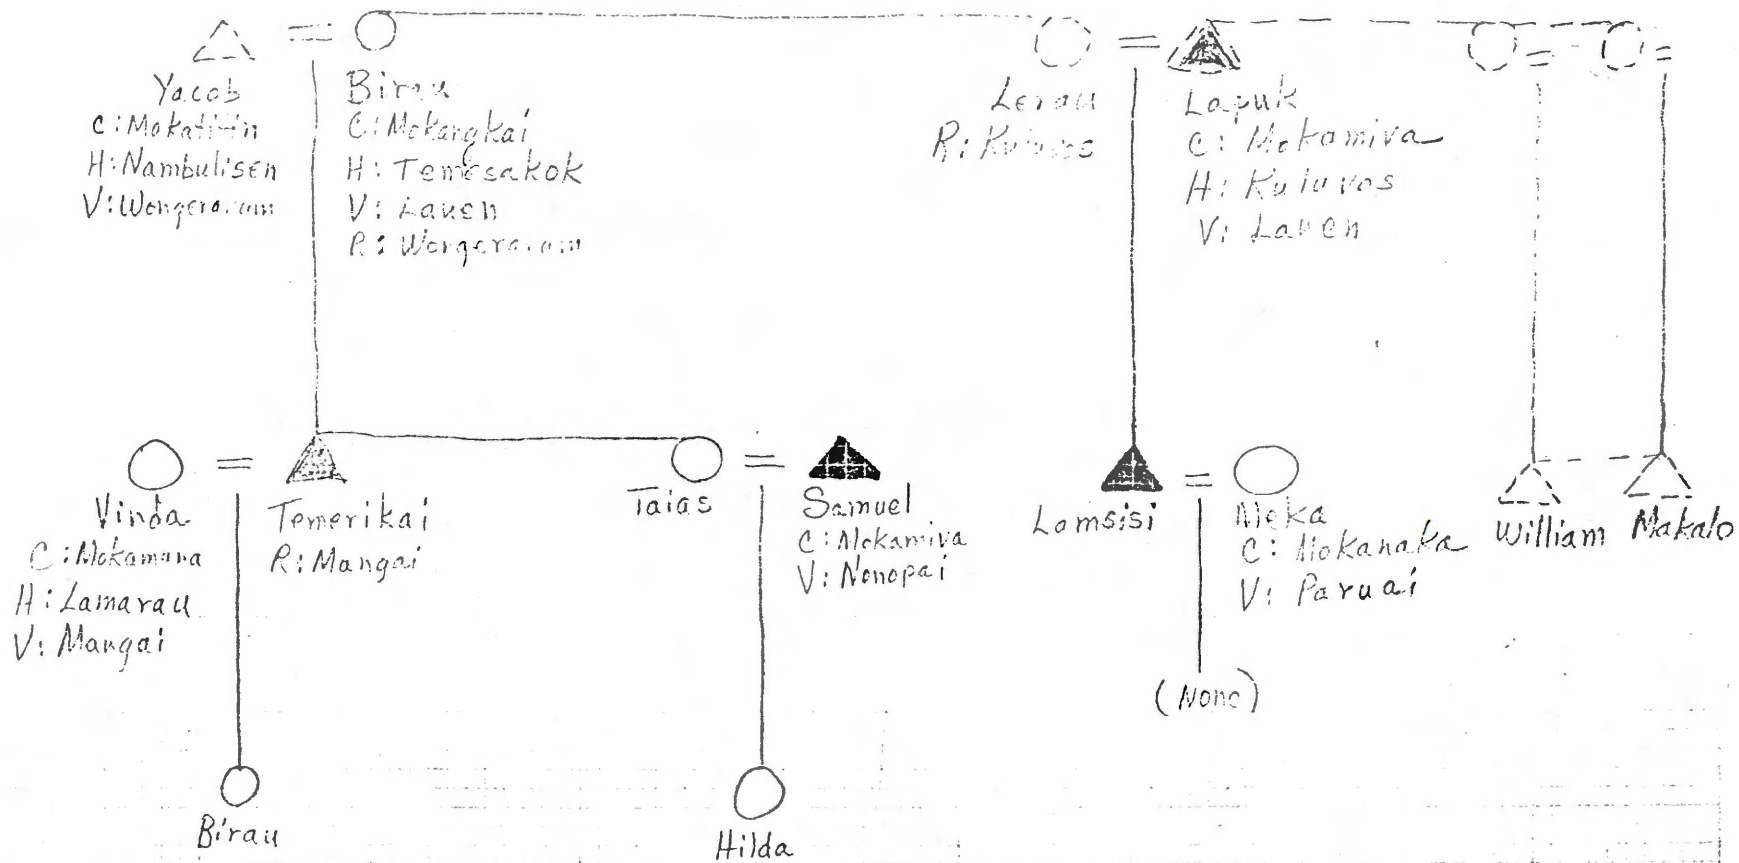 Yacob
C: Mokatitin
H: Nambulisen
V: Wongerarum
Birau
C: Mokangkai
H: Temesakok
V: Lauen
R: Wongerarum
Lerau
R: Kuluvos
Lapuk
C: Mokamiva
H: Kuluvos
V: Lauen
Vinda
C: Mokamuna
H: Lamarau
V: Mangai
Temerikai
R: Mangai
Taias
Samuel
C: Mokamiva
V: Nonopai
Lomsisi
Meka
C: Mokanaka
V: Paruai
(None)
William
Makalo
Birau
Hilda